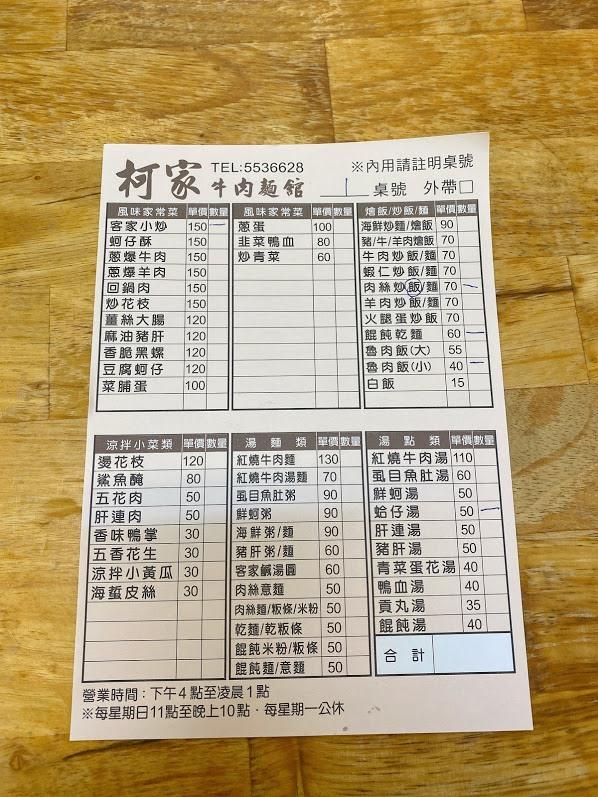 柯家牛肉麵館 TEL:5536628 ※內用請註明桌號
1 桌號 外帶□
風味家常菜 單價 數量
客家小炒 150 一
蚵仔酥 150
蔥爆牛肉 150
蔥爆羊肉 150
回鍋肉 150
炒花枝 150
薑絲大腸 120
麻油豬肝 120
香脆黑螺 120
豆腐蚵仔 120
菜脯蛋 100
風味家常菜 單價 數量
蔥蛋 100
韭菜鴨血 80
炒青菜 60
燴飯/炒飯/麵 單價 數量
海鮮炒麵/燴飯 90
豬/牛/羊肉燴飯 70
牛肉炒飯/麵 70
蝦仁炒飯/麵 70
肉絲炒飯/麵 70 一
羊肉炒飯/麵 70
火腿蛋炒飯 70
餛飩乾麵 60 一
魯肉飯(大) 55
魯肉飯(小) 40 一
白飯 15
涼拌小菜類 單價 數量
燙花枝 120
鯊魚醃 80
五花肉 50
肝連肉 50
香味鴨掌 30
五香花生 30
涼拌小黃瓜 30
海蜇皮絲 30
湯麵類 單價 數量
紅燒牛肉麵 130
紅燒牛肉湯麵 70
虱目魚肚粥 90
鮮蚵粥 90
海鮮粥/麵 90
豬肝粥/麵 60
客家鹹湯圓 60
肉絲意麵 50
肉絲麵/粄條/米粉 50
乾麵/乾粄條 50
餛飩米粉/粄條 50
餛飩麵/意麵 50
湯點類 單價 數量
紅燒牛肉湯 110
虱目魚肚湯 60
鮮蚵湯 50
蛤仔湯 50 一
肝連湯 50
豬肝湯 50
青菜蛋花湯 40
鴨血湯 40
貢丸湯 35
餛飩湯 40
合計
營業時間：下午4點至凌晨1點
※每星期日11點至晚上10點．每星期一公休